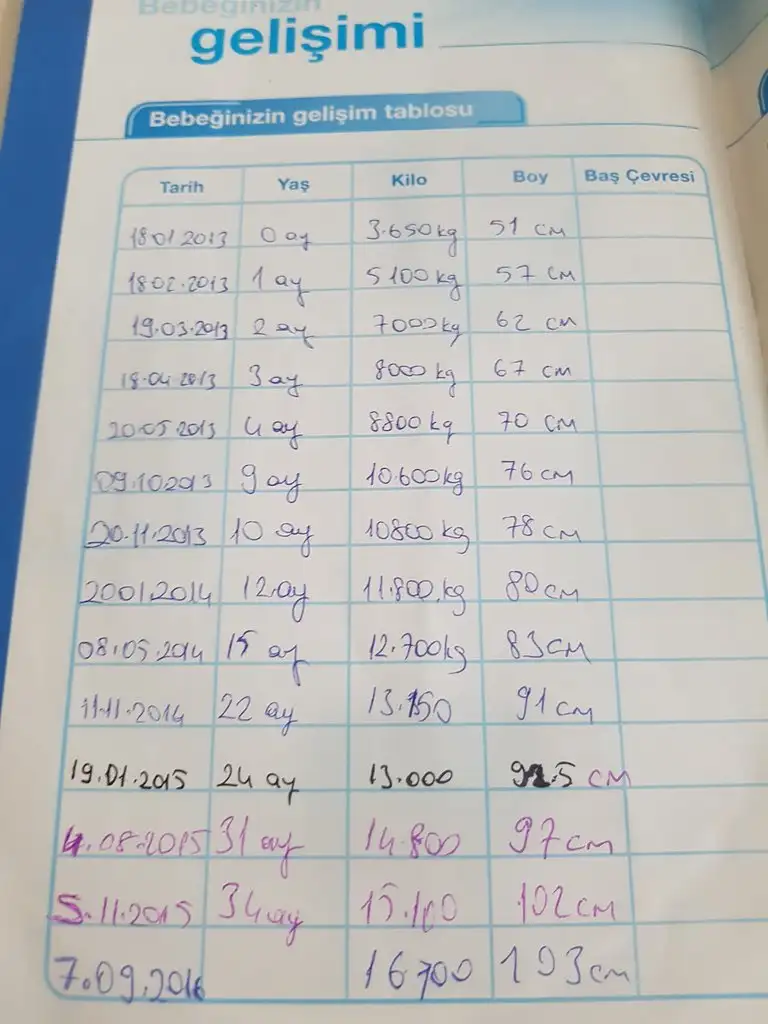 Bebeğinizin
gelişimi
Bebeğinizin gelişim tablosu
Tarih Yaş Kilo Boy Baş Çevresi
18.01.2013 0 ay 3.650 kg 51 cm
18.02.2013 1 ay 5100 kg 57 cm
19.03.2013 2 ay 7000 kg 62 cm
18.04.2013 3 ay 8000 kg 67 cm
20.05.2013 4 ay 8800 kg 70 cm
09.10.2013 9 ay 10.600kg 76 cm
20.11.2013 10 ay 10800 kg 78 cm
20.01.2014 12 ay 11.800 kg 80 cm
08.05.2014 15 ay 12.700kg 83 cm
11.11.2014 22 ay 13.150 91 cm
19.01.2015 24 ay 13.000 92.5 cm
4.08.2015 31 ay 14.800 97 cm
5.11.2015 34 ay 15.100 102 cm
7.09.2016 16700 103 cm